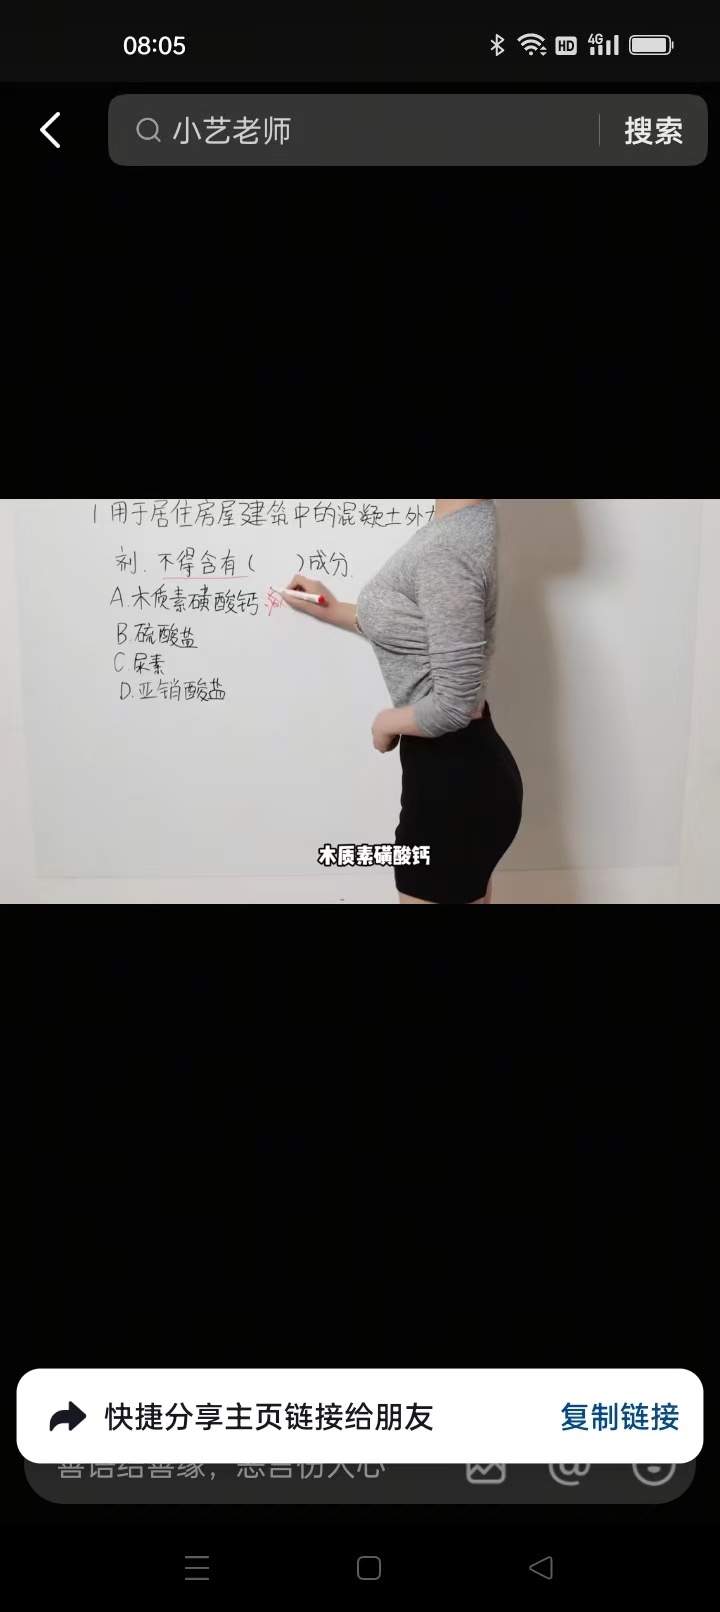 08:05
HD
4G
小艺老师
搜索
1 用于居住房屋建筑中的混凝土外
剂. 不得含有( )成分.
A.木质素磺酸钙
B.硫酸盐
C.尿素
D.亚销酸盐
木质素磺酸钙
快捷分享主页链接给朋友
复制链接
善语结善缘，恶言伤人心